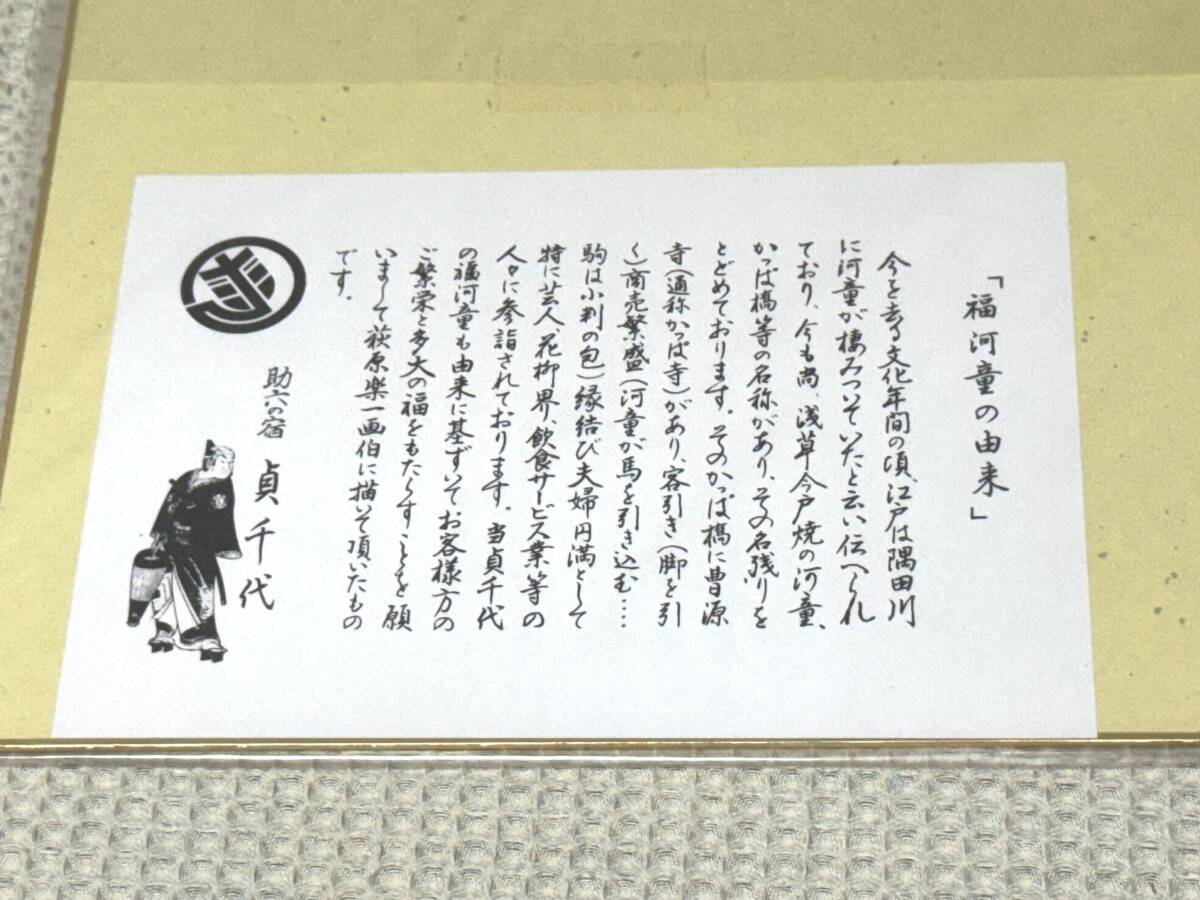 「福河童の由来」
今を去る文化年間の頃、江戸は隅田川
に河童が棲みついていたと云い伝へられ
ており、今も尚、浅草今戸焼の河童、
かっぱ橋等の名称があり、その名残りを
とどめております。そのかっぱ橋に曹源
寺（通称かっぱ寺）があり、客引き（脚を引
く）商売繁盛（河童が馬を引き込む…
駒は小判の包）縁結び夫婦円満として
特に芸人、花柳界、飲食サービス業等の
人々に参詣されております。当貞千代
の福河童も由来に基ずいてお客様方の
ご繁栄と多大の福をもたらすことを願
いまして萩原楽一画伯に描いて頂いたもの
です。
助六の宿 貞千代